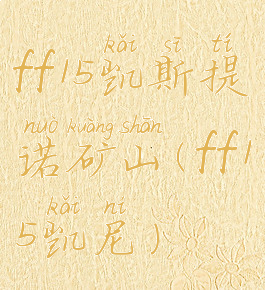 kǎi sī tí
ff15凯斯提
nuò kuàng shān
诺矿山(ff1
kǎi ní
5凯尼)